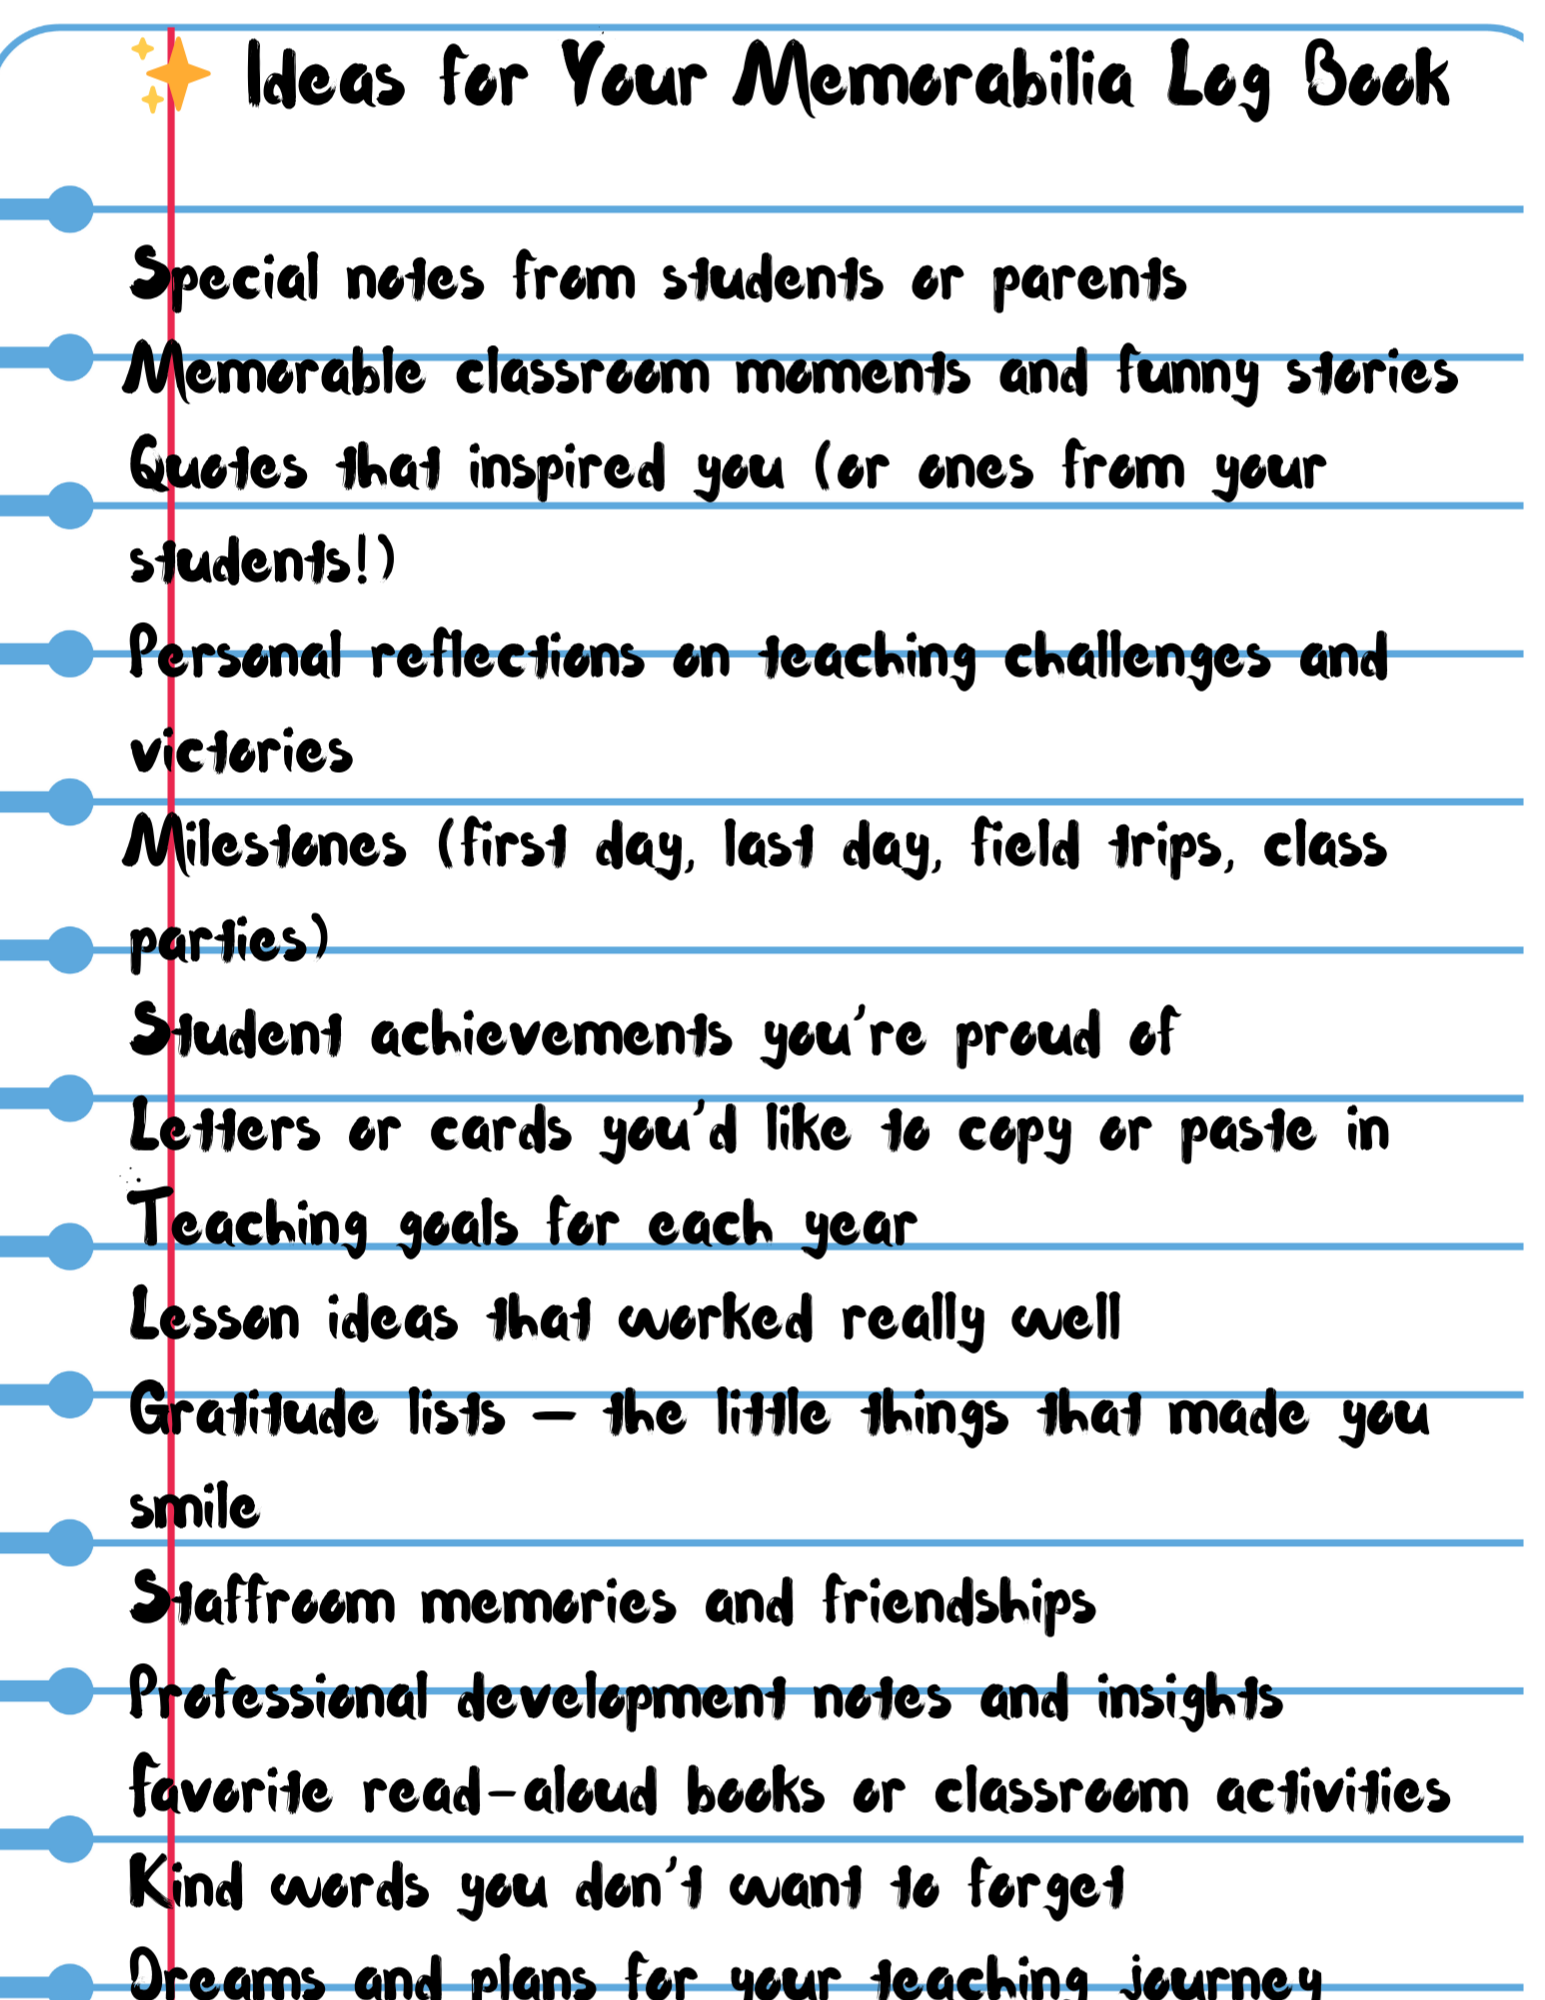 ✨ Ideas for Your Memorabilia Log Book
Special notes from students or parents
Memorable classroom moments and funny stories
Quotes that inspired you (or ones from your
students!)
Personal reflections on teaching challenges and
victories
Milestones (first day, last day, field trips, class
parties)
Student achievements you're proud of
Letters or cards you'd like to copy or paste in
Teaching goals for each year
Lesson ideas that worked really well
Gratitude lists — the little things that made you
smile
Staffroom memories and friendships
Professional development notes and insights
favorite read-aloud books or classroom activities
Kind words you don't want to forget
Dreams and plans for your teaching journey